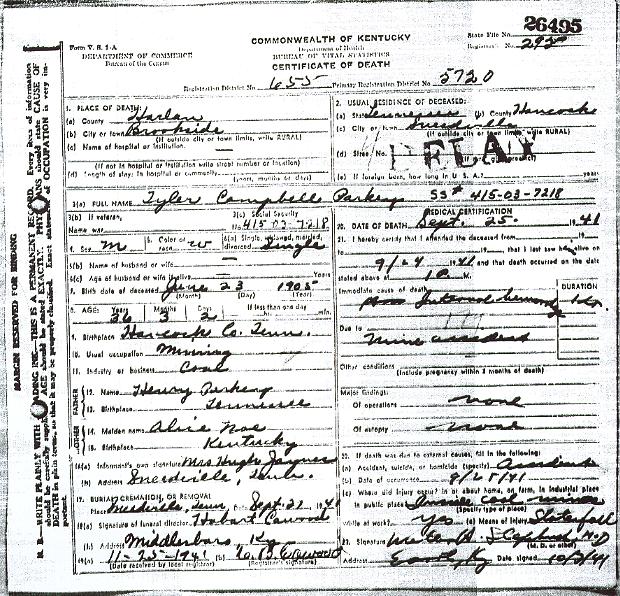 26495
COMMONWEALTH OF KENTUCKY
State File No.
Form V. S. 1-A
Department of Health
Registrar's No. 295
DEPARTMENT OF COMMERCE
BUREAU OF VITAL STATISTICS
Bureau of the Census
CERTIFICATE OF DEATH
Registration District No. 655 Primary Registration District No. 5720
MARGIN RESERVED FOR BINDING
1. PLACE OF DEATH:
(a) County Harlan
(b) City or town Brookside
(If outside city or town limits, write RURAL)
(c) Name of hospital or institution:
(If not in hospital or institution write street number or location)
(d) Length of stay: In hospital or community
(years, months or days)
2. USUAL RESIDENCE OF DECEASED:
(a) State Tennessee (b) County Hancock
(c) City or town Sneedville
(If outside city or town limits, write RURAL)
(d) Street No.
DELAY
(e) If foreign born, how long in U. S. A.? years
3(a) FULL NAME Tyler Campbell Parkey SS# 415-03-7218
3(b) If veteran,
Name war
3(c) Social Security
No. 415-03-7218
4. Sex M 5. Color or race W 6(a) Single, widowed, married, divorced Single
6(b) Name of husband or wife
6(c) Age of husband or wife if alive Years
7. Birth date of deceased June 23 1905
(Month) (Day) (Year)
8. AGE: Years 36 Months 3 Days 2 If less than one day hr. min.
9. Birthplace Hancock Co. Tenn.
10. Usual occupation Mining
11. Industry or business Coal
FATHER
12. Name Henry Parkey
13. Birthplace Tennessee
MOTHER
14. Maiden name Alice Noe
15. Birthplace Kentucky
16(a) Informant's own signature Mrs Hugh Jaynes
(b) Address Sneedville, Tenn.
17. BURIAL, CREMATION, OR REMOVAL
Place Sneedville, Tenn Date Sept. 27 1941
18(a) Signature of funeral director Hobart Cawood
(b) Address Middlesboro Ky
19(a) 11-25-1941 (b)
(Date received by local registrar) (Registrar's signature)
MEDICAL CERTIFICATION
20. DATE OF DEATH Sept. 25 1941
21. I hereby certify that I attended the deceased from
19 , to , 19 , that I last saw him alive on
9/24 1941 and that death occurred on the date
stated above at 1 a M.
DURATION
Immediate cause of death
Internal hemorrhage
Due to
mine accident
Other conditions
(Include pregnancy within 3 months of death)
Major findings:
Of operations none
Of autopsy none
22. If death was due to external causes, fill in the following:
(a) Accident, suicide, or homicide (specify) Accident
(b) Date of occurrence 9/25/41
(c) Where did injury occur? In or about home, on farm, in industrial place
in public place? Inside coal mines
(Specify type of place)
While at work? yes (e) Means of injury Slatefall
23. Signature
(M. D. or other)
Address Ky Date signed 10/2/41